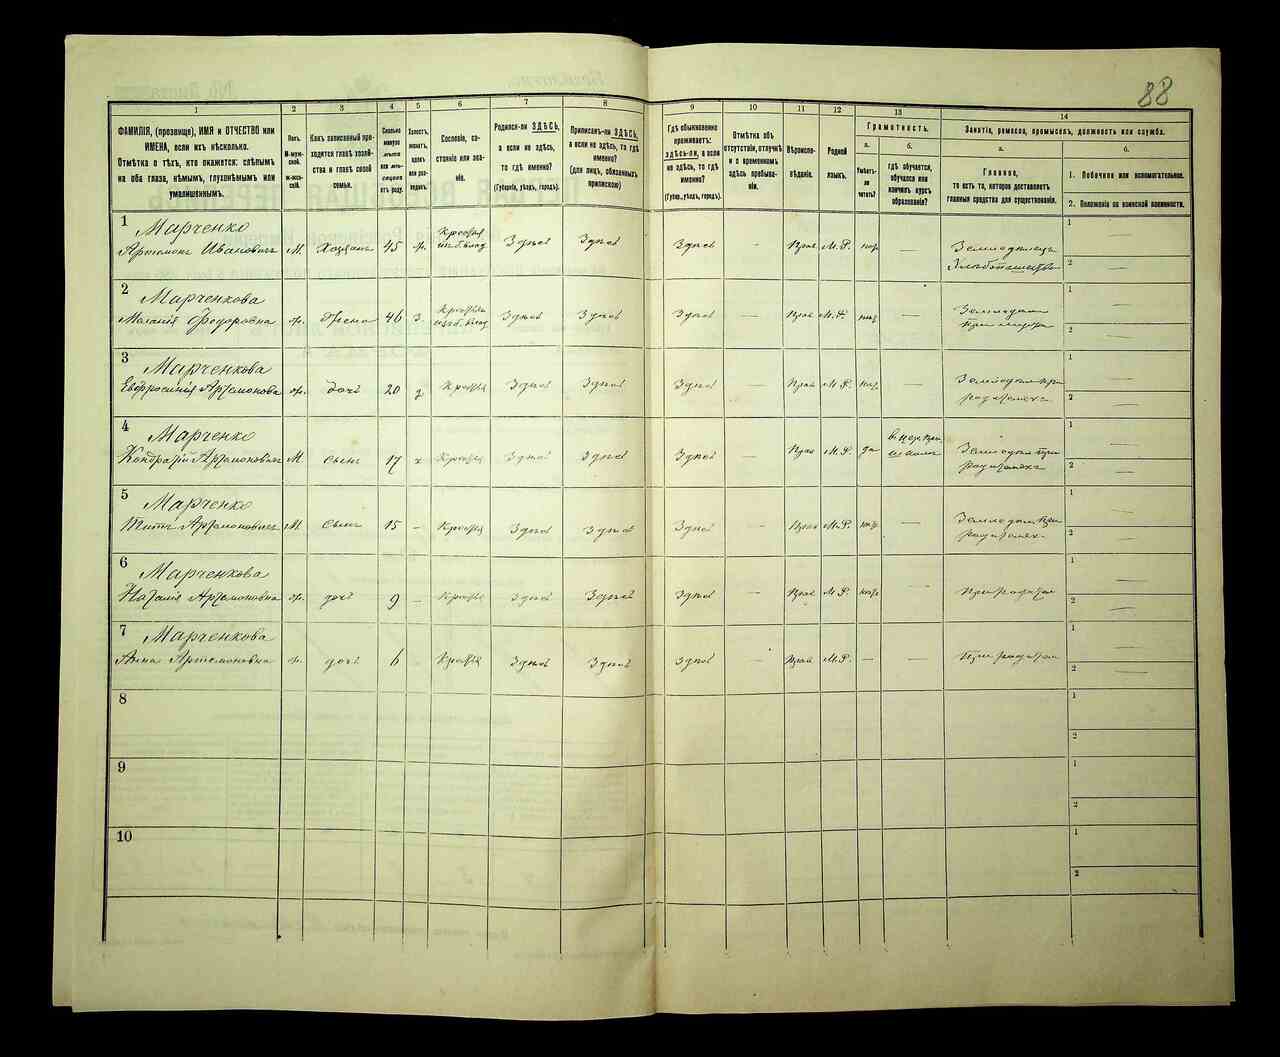 88
1 2 3 4 5 6 7 8 9 10 11 12 13 14
ФАМИЛІЯ, (прозвище), ИМЯ и ОТЧЕСТВО или ИМЕНА, если ихъ нѣсколько.
Отмѣтка о тѣхъ, кто окажется: слѣпымъ на оба глаза, нѣмымъ, глухонѣмымъ или умалишеннымъ.
Полъ.
М-мужской.
Ж-женскій.
Какъ записанный приходится главѣ хозяйства и главѣ своей семьи.
Сколько минуло лѣтъ или мѣсяцевъ отъ роду.
Холостъ, женатъ, вдовъ или разведенъ.
Сословіе, состояніе или званіе.
Родился-ли ЗДѢСЬ, а если не здѣсь, то гдѣ именно?
(Губернія, уѣздъ, городъ).
Приписанъ-ли ЗДѢСЬ, а если не здѣсь, то гдѣ именно?
(для лицъ, обязанныхъ припискою)
Гдѣ обыкновенно проживаетъ: ЗДѢСЬ-ЛИ, а если не здѣсь, то гдѣ именно?
(Губер., уѣздъ, городъ).
Отмѣтка объ отсутствіи, отлучкѣ и о временномъ здѣсь пребываніи.
Вѣроисповѣданіе.
Родной языкъ.
Грамотность.
а.
Умѣетъ-ли читать?
б.
гдѣ обучается, обучался или кончилъ курсъ образованія?
Занятіе, ремесло, промыселъ, должность или служба.
а.
Главное,
то есть то, которое доставляетъ главныя средства для существованія.
б.
1. Побочное или вспомогательное.
2. Положеніе по воинской повинности.
1 Марченко
Артемонъ Ивановичъ М. Хозяинъ 45 Здѣсь Здѣсь Здѣсь - Прав М.Р. — 1 —
Земледѣлецъ
Хлѣбопашество 2 —
2 Марченкова
Маланія Федоровна ж. жена 46 з. Здѣсь Здѣсь Здѣсь — Прав М.Р. 1 —
2 —
3 Марченкова
Евфросинія Артемонова ж. дочь 20 д Крестья Здѣсь Здѣсь Здѣсь — Прав М.Р. — 1 —
2 —
4 Марченко
Кондратій Артемоновичъ М. сынъ 17 х Крестья Здѣсь Здѣсь Здѣсь — Прав М.Р. да 1 —
2 —
5 Марченко
Титъ Артемоновичъ М сынъ 15 - Крестья Здѣсь Здѣсь Здѣсь — Прав М.Р. — 1 —
2 —
6 Марченкова
Наталія Артемоновна ж. дочь 9 - Крестья Здѣсь Здѣсь Здѣсь — Прав М.Р. — 1 —
2 —
7 Марченкова
Анна Артемоновна ж. дочь 6 - Крестья Здѣсь Здѣсь Здѣсь — Прав М.Р. — — 1 —
2 —
8 1
2
9 1
2
10 1
2